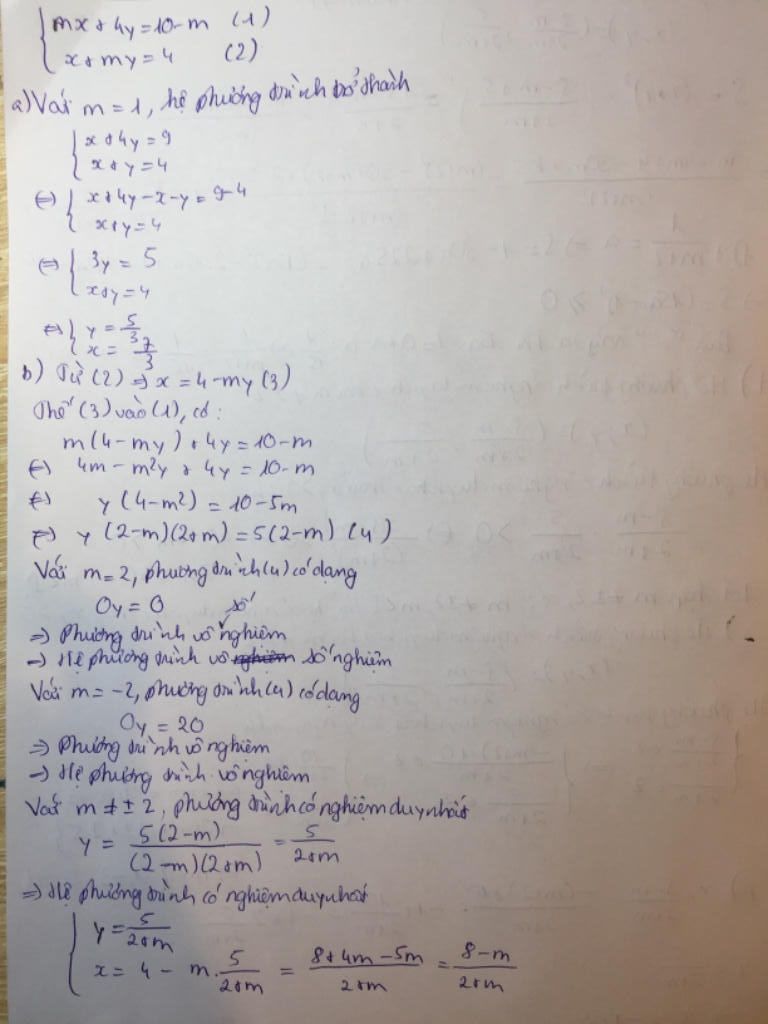 mx + 4y = 10 - m (1)
x + my = 4 (2)
a) Với m = 1, hệ phương trình trở thành
x + 4y = 9
x + y = 4
⇔ x + 4y - x - y = 9 - 4
x + y = 4
⇔ 3y = 5
x + y = 4
⇔ y = 5/3
x = 7/3
b) Từ (2) ⇒ x = 4 - my (3)
Thế (3) vào (1), có:
m(4 - my) + 4y = 10 - m
⇔ 4m - m²y + 4y = 10 - m
⇔ y(4 - m²) = 10 - 5m
⇔ y(2 - m)(2 + m) = 5(2 - m) (4)
Với m = 2, phương trình (4) có dạng
0y = 0
⇒ Phương trình vô số nghiệm
→ Hệ phương trình vô số nghiệm
Với m = -2, phương trình (4) có dạng
0y = 20
⇒ Phương trình vô nghiệm
→ Hệ phương trình vô nghiệm
Với m ≠ ± 2, phương trình có nghiệm duy nhất
y = 5(2 - m) / (2 - m)(2 + m) = 5 / 2 + m
⇒ Hệ phương trình có nghiệm duy nhất
y = 5 / 2 + m
x = 4 - m . 5 / 2 + m = 8 + 4m - 5m / 2 + m = 8 - m / 2 + m